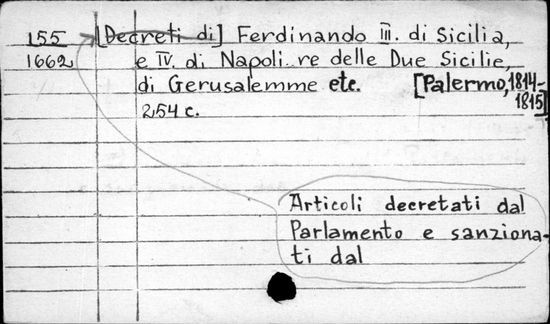 155 [Decreti di] Ferdinando III. di Sicilia,
1662 e IV. di Napoli re delle Due Sicilie,
di Gerusalemme etc. [Palermo, 1814-
1815]
254 c.
Articoli decretati dal
Parlamento e sanziona-
ti dal